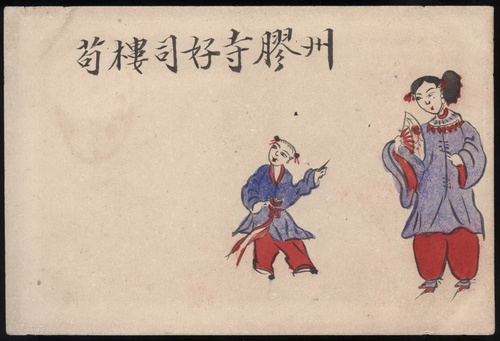 州膠寺好司樓茍